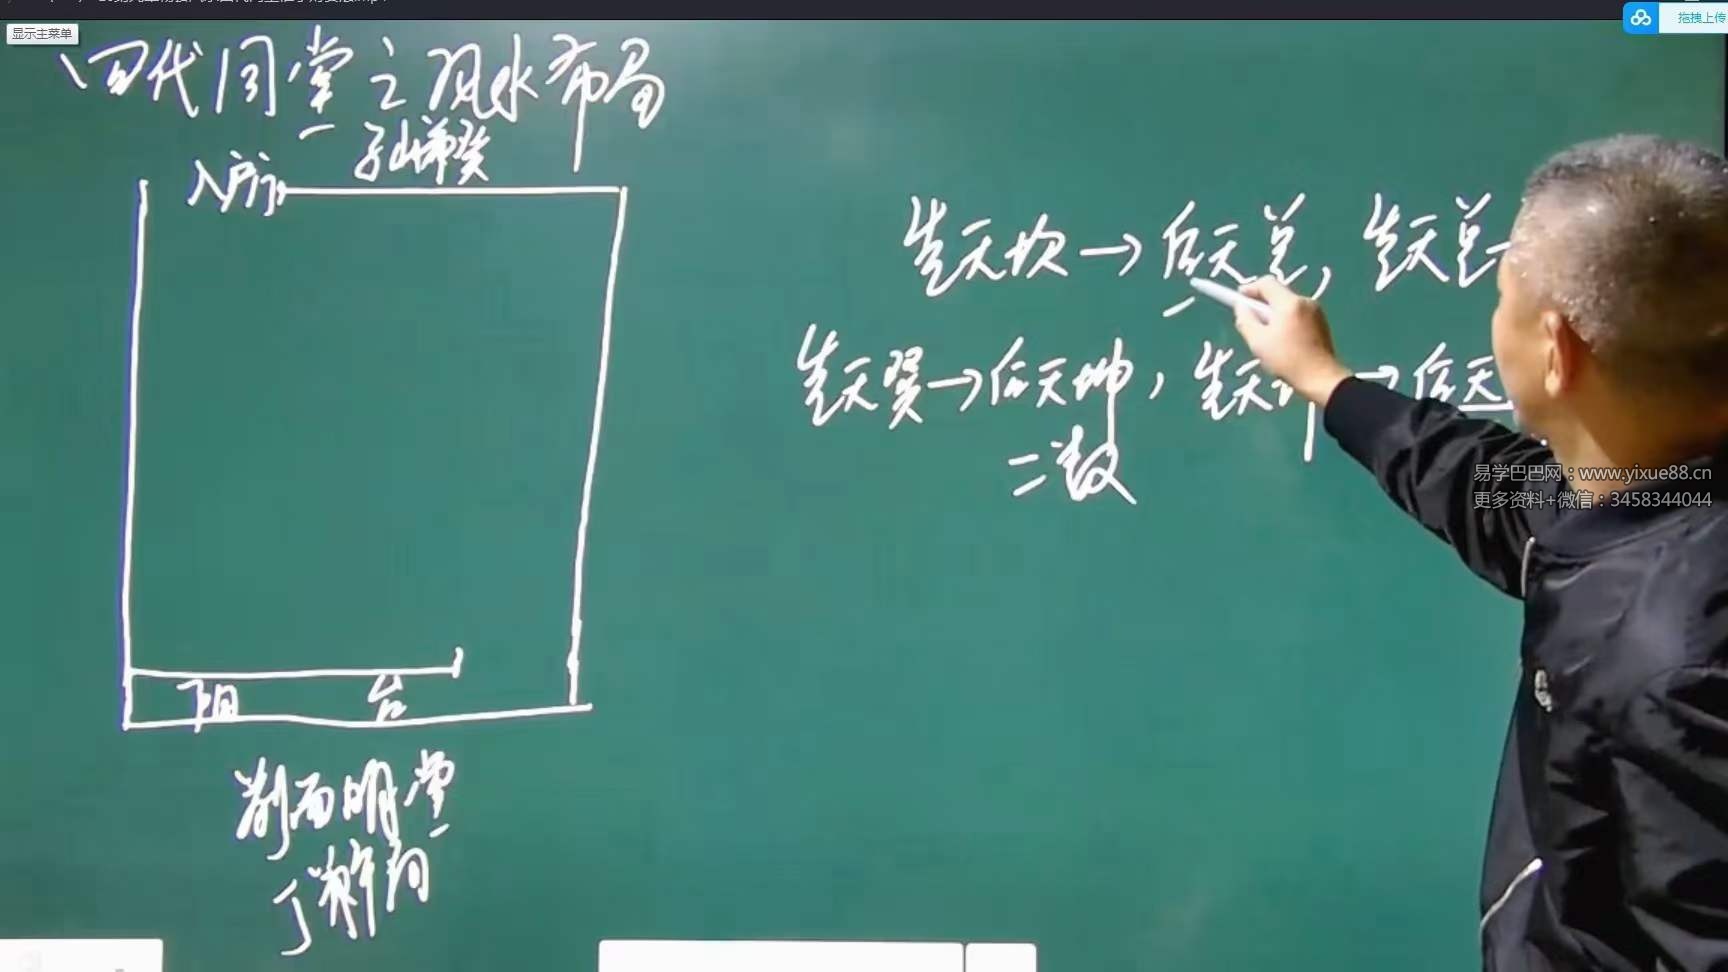 显示主菜单
拖拽上传
四代同堂之风水布局
入户门
先天坎→后天兑，先天兑
先天巽→后天坤，先天坤→后天
二数
阳台
前面明堂
丁兼午向
易学巴巴网：www.yixue88.cn
更多资料+微信：3458344044